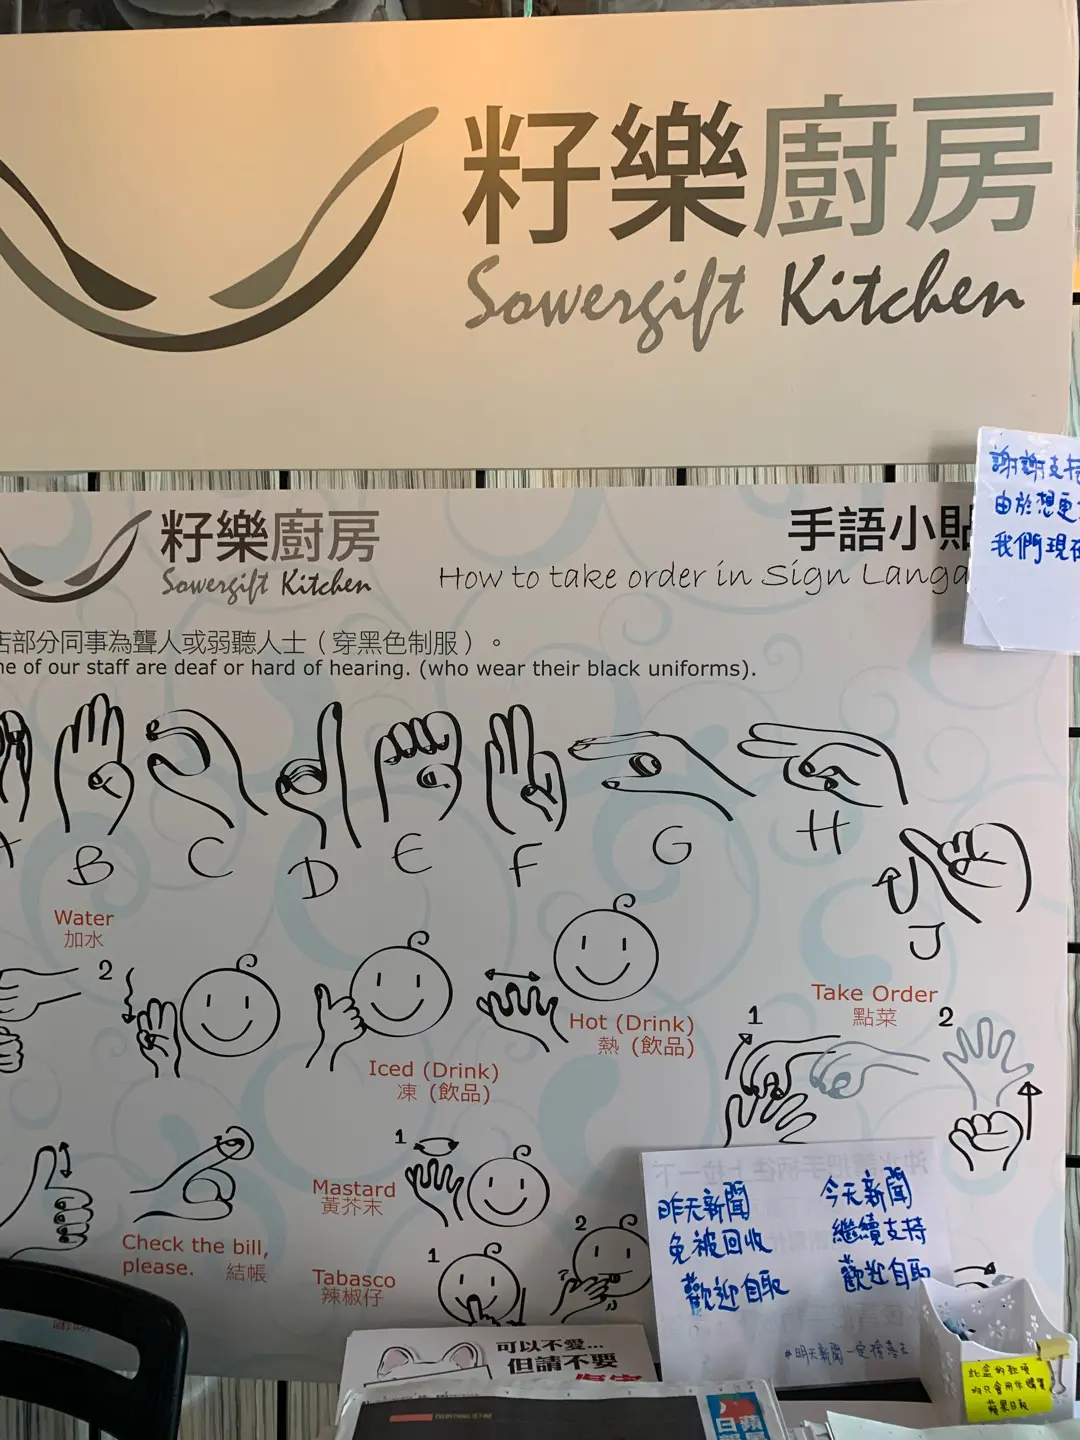 籽樂廚房
Sowergift Kitchen
籽樂廚房
Sowergift Kitchen
手語小貼
How to take order in Sign Langa
店部分同事為聾人或弱聽人士（穿黑色制服）。
ne of our staff are deaf or hard of hearing. (who wear their black uniforms).
謝謝支持
由於想更
我們現在
A B C D E F G H
J
Water
加水
2
Iced (Drink)
凍 (飲品)
Hot (Drink)
熱 (飲品)
Take Order
點菜
1
2
Check the bill,
please. 結帳
Mastard
黃芥末
1
Tabasco
辣椒仔
1
2
昨天新聞
免被回收
歡迎自取
今天新聞
繼續支持
歡迎自取
#明天新聞一定
可以不愛...
但請不要
傷害
EVERYTHING IS FINE
蘋
日
此盒的款項
均只會用作購買
蘋果日報